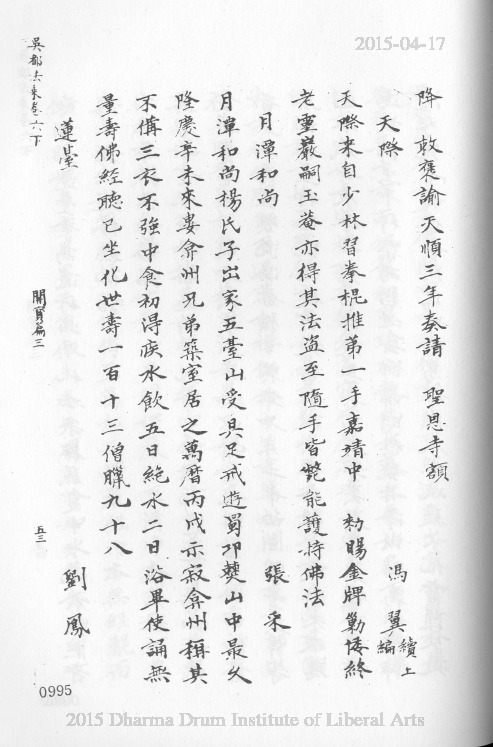 2015-04-17
降　敕褒諭天順三年奏請　聖恩寺額
天際　馮翼續編上
天際来自少林習拳棍推苐一手嘉靖中　勑賜金牌勦倭終
老靈巖嗣玉菴亦得其法盜至隨手皆斃能護持佛法
月潭和尚　張采
月潭和尚楊氏子出家五臺山受具足戒遊蜀卭㚇山中最久
隆慶辛未來婁弇州兄弟築室居之萬曆丙戌示寂弇州稱其
不備三衣不強中食初得疾水飲五日絶水二日浴畢使誦無
量壽佛經聽已坐化世壽一百十三僧臘九十八
蓮䑓　劉鳳
吳都法乘卷六下
開實篇三
五三
0995
2015 Dharma Drum Institute of Liberal Arts